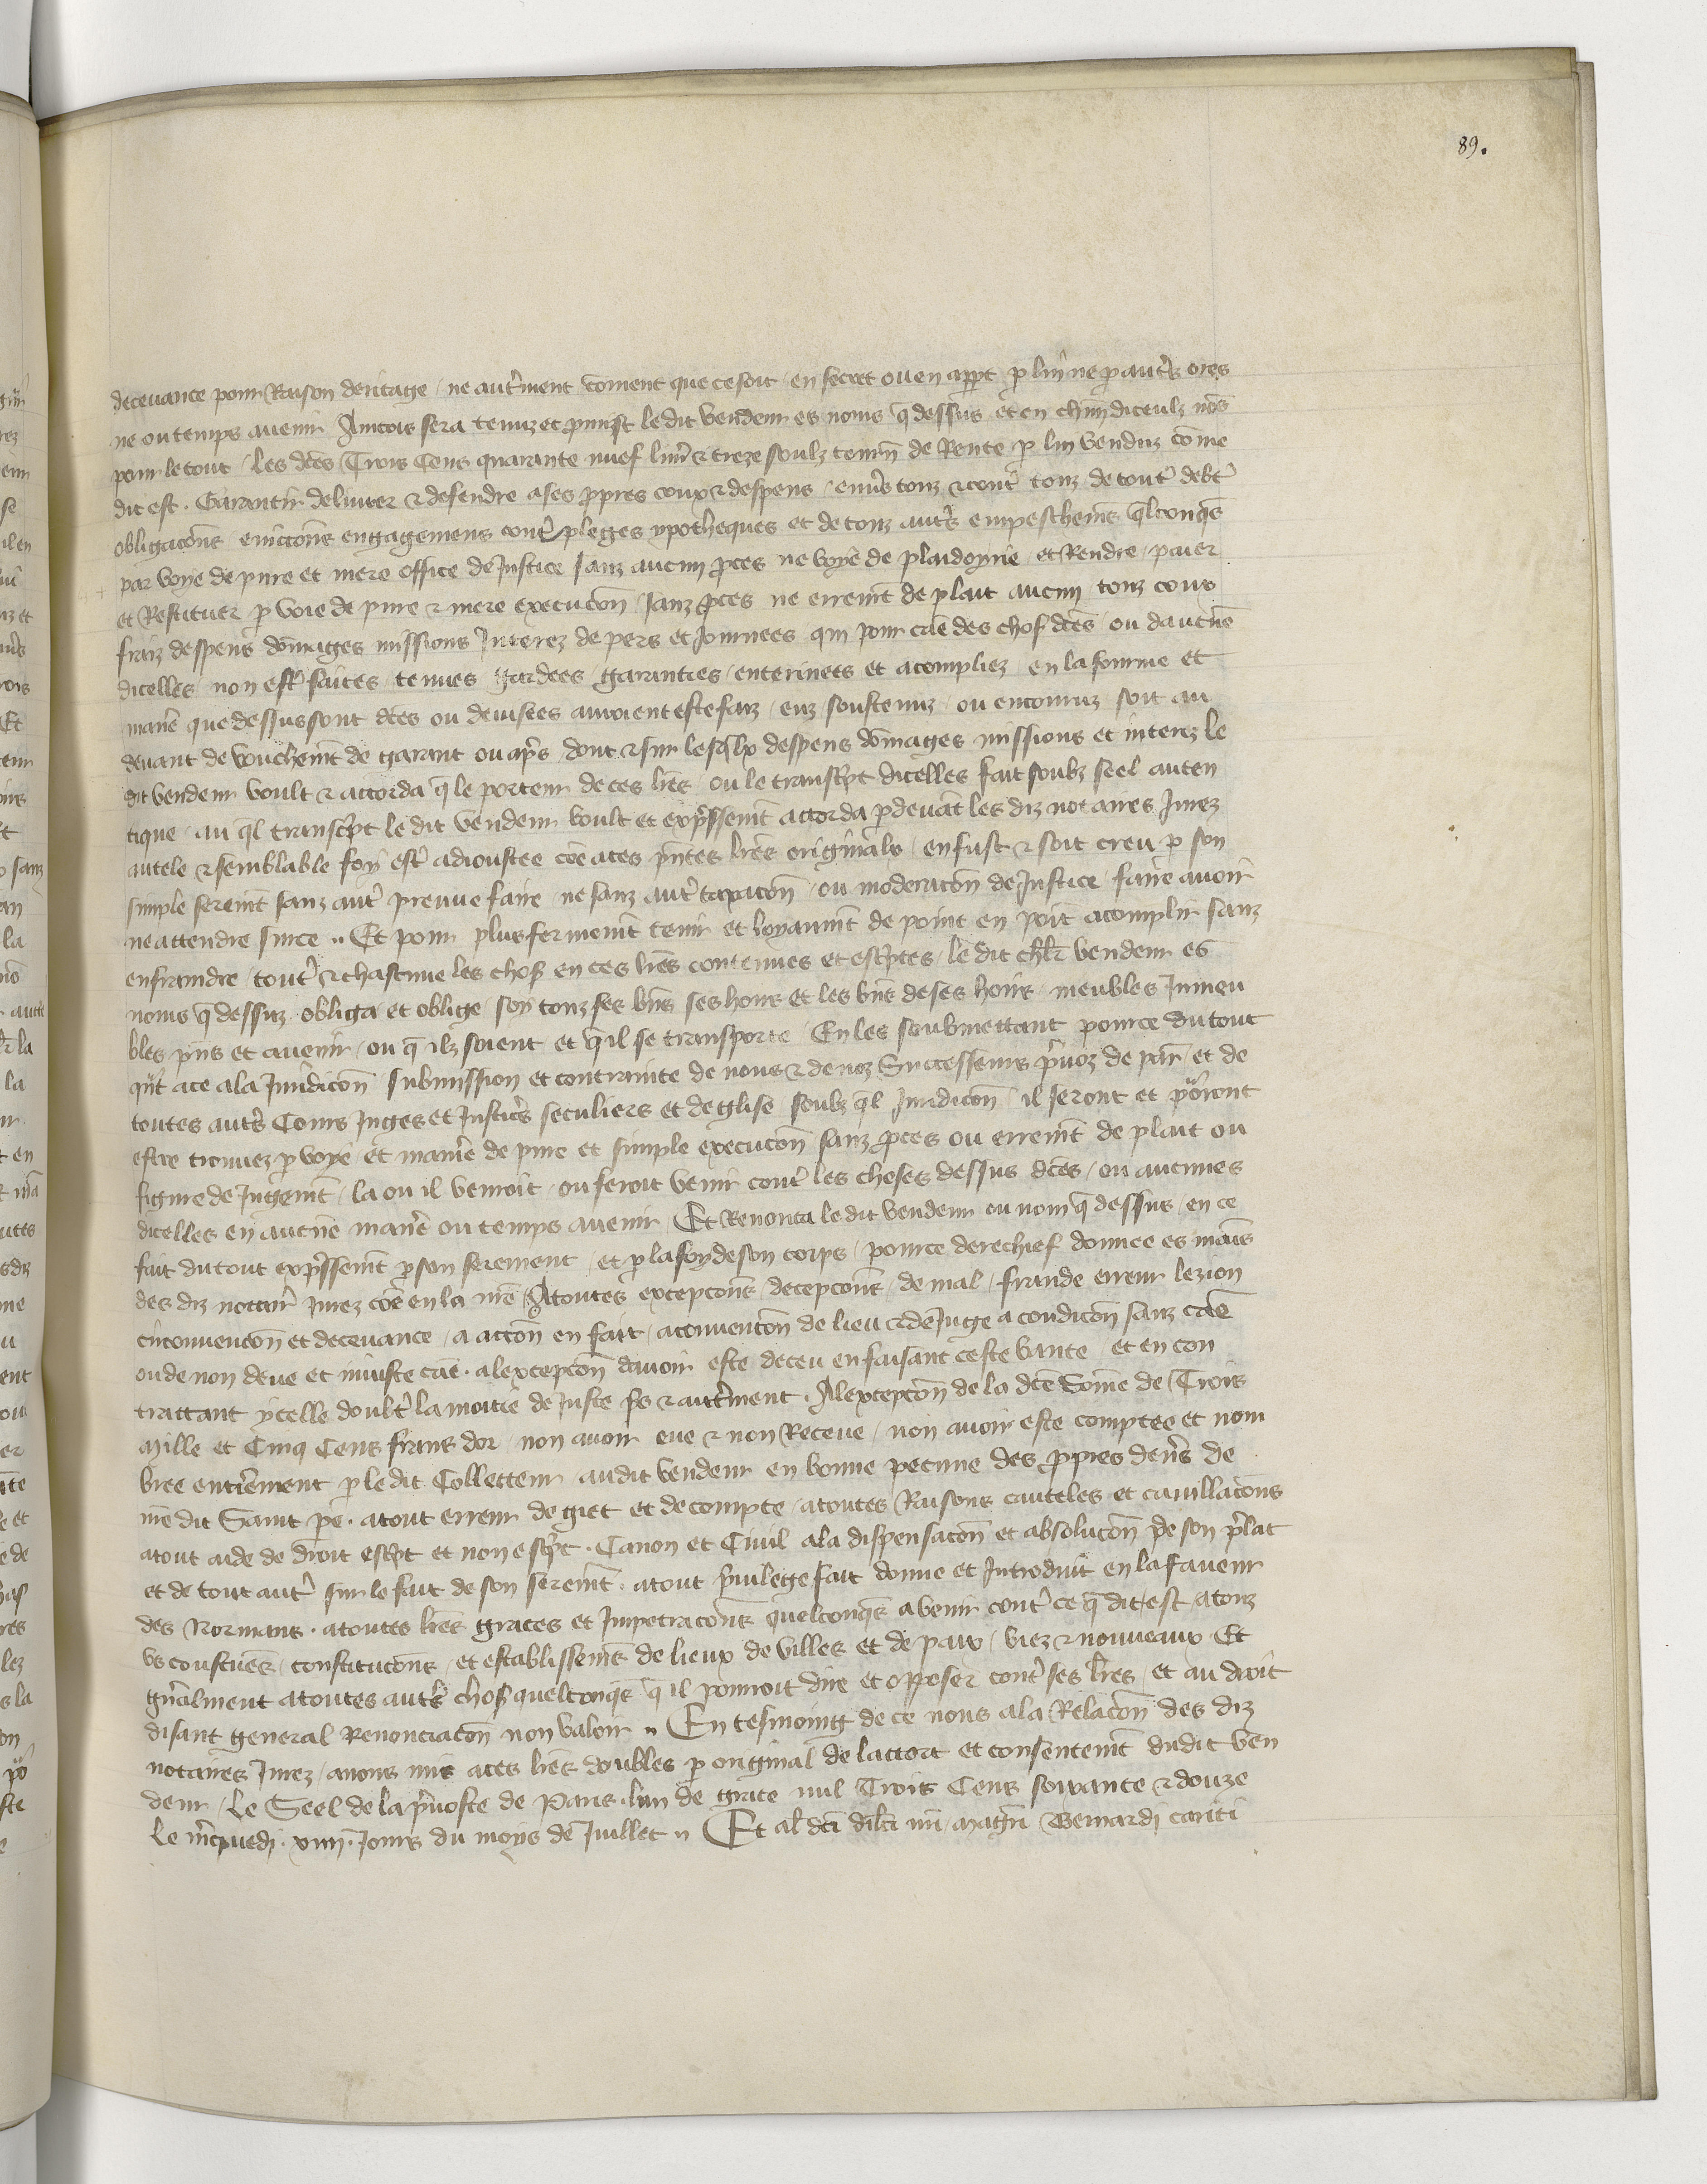 89.
decevance pour Raison deritage / ne autrement coment que ce soit / en secret ou en appt p luy ne p autres ores
ne ou temps avenir Aincois sera tenuz et promist le dit vendeur es noms q dessus et en chun diceulz nos
pour le tout / les dces Trois Cens quarante nuef livr & treze soulz tourn de Rente p luy venduz come
dit est . Garantir delivrer & defendre a ses ppres coux & despens / envers touz & contr touz de tout debt
obligacons eviccons engagemens contr pleges ypotheques et de touz autres empeschemens qlconqs
par voye de pure et mere office de Justice sanz aucun pces ne voye de plaidoyrie et Rendre / paier
et Restituer p voie de pure & mere execucon / sanz pces ne errement de plait aucun / touz cous
fraiz despens domages missions Interez de pers et Journees qui pour cause des chos dces ou daucunes
dicelles non estr faites / tenues gardees / garanties / enterinees et acomplies en la fourme et
manr que dessus sont dces ou devisees auroient este faiz / euz / soustenuz / ou encouruz soit au
devant de vouchement de garant ou aprs / dont & sur lesqlx despens domages missions et interez le
dit vendeur voult & accorda q le porteur de ces lres / ou le transcpt dicelles fait soubz seel auten
tique / au ql transcpt le dit vendeur voult et expssement accorda p devant les diz notaires Jurez
autele & semblable foy estr adioustee coe a ces pntes lres originalx / en fust & soit creu p son
simple serement sanz autr preuve faire / ne sanz autr taxacon / ou moderacon de Justice / faire avoir
ne attendre sur ce .. Et pour plus fermement tenir et loyaument de point en point acomplir sanz
enfraindre / tout & chascune les chos en ces lres contenues et escptes / le dit chlr vendeur es
noms q dessus / obliga et oblige soy touz ses bns ses hoirs et les bns de ses hoirs / meubles Inmeu
bles pns et avenir / ou q ilz soient et q il se transporte / En les soubmettant pour ce du tout
qnt a ce a la Juridicon submission et contrainte de nous & de noz Successeurs pvoz de par et de
toutes autres Cours Juges et Justicrs seculiers et deglise soubz ql Juridicon / il seront et porront
estre trouvez p voye et manr de pure et simple execucon sanz pces ou errement de plait ou
figure de Jugement / la ou il venroit / ou feroit venir contr les choses dessus dces / ou aucunes
dicelles en aucune manr ou temps avenir / Et Renonca le dit vendeur ou nom q dessus / en ce
fait du tout expssement p son serement / et p la foy de son corps / pour ce derechief donnee es mains
des diz notair Jurez coe en la nre / A toutes excepcons / decepcons / de mal / fraude erreur lezion
circonvencon et decevance / a accon en fait / a convencon de lieu & de Juge a condicon sanz cause
ou de non deue et iniuste cause . a lexcepcon davoir este deceu en faisant ceste vante / et en con
trattant ycelle doultr la moitie de Juste ps & autrement . A lexcepcon de la dce Some de Trois
Mille et Cinq Cens frans dor / non avoir eue & non Receue / non avoir este comptee et nom
bree entirement p le dit Collecteur au dit vendeur en bonne pecune des ppres denrs de
nre dit Saint pe . a tout erreur de giet et de compte / a toutes Raisons cauteles et cavillacons
a tout aide de droit escpt et non escpt . Canon et Civil a la dispensacon et absolucon de son prlat
et de tout autr sur le fait de son serement . a tout privilege fait donne et Introduit en la faveur
des Normans . a toutes lres graces et Impetracons quelconqs a venir contr ce q dit est / a touz
us coustumes / constitucons / et establissemens de lieux de villes et de paix / viez & nouveaux Et
gnralment a toutes autrs chos quelconqs q il pourroit dire et opposer contr ses lres / et au droit
disant general Renonciacon non valoir .. En tesmoing de ce nous a la Relacon des diz
notaires Jurez / avons mis a ces lres doubles p original de laccort et consentement du dit ven
deur / Le Seel de la pvoste de Paris . lan de grace mil Trois Cens soixante & douze
Le mcquedi . xiiij . Jours du moys de Juillet .. Et al dci dilci nri Magri Bernardi cariti